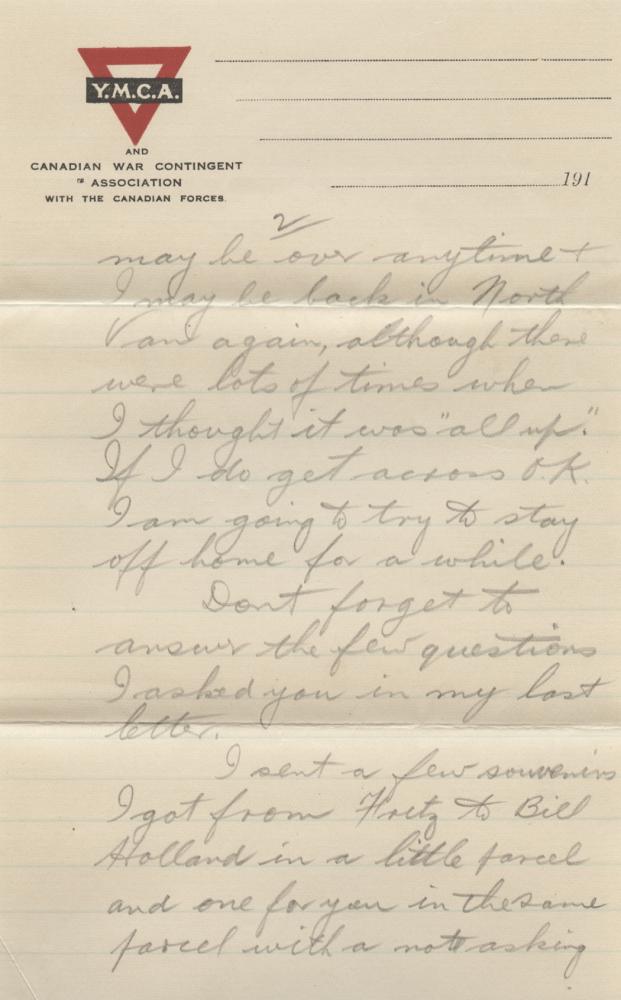 Y.M.C.A.
AND
CANADIAN WAR CONTINGENT
ASSOCIATION
WITH THE CANADIAN FORCES.
191
2
may be over anytime +
I may be back in North
Van again, although there
were lots of times when
I thought it was "all up."
If I do get across O.K.
I am going to try to stay
off home for a while.
Dont forget to
answer the few questions
I asked you in my last
letter.
I sent a few souvenirs
I got from Fritz to Bill
Holland in a little parcel
and one for you in the same
parcel with a note asking